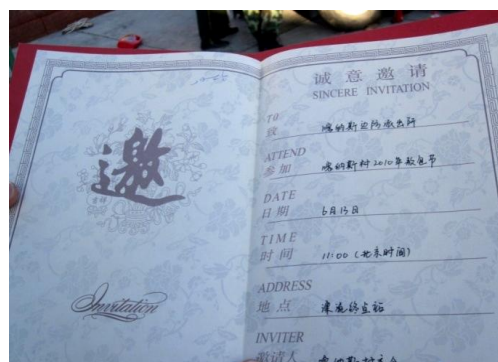 邀
Invitation
诚意邀请
SINCERE INVITATION
TO
致 喀纳斯边防派出所
ATTEND
参加 喀纳斯村2010年敖包节
DATE
日期 6月13日
TIME
时间 11:00 (北京时间)
ADDRESS
地点
INVITER
邀请人